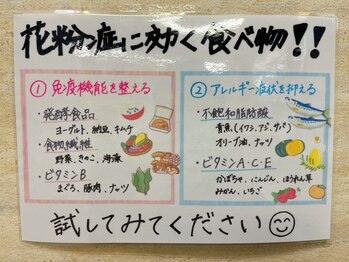 花粉症に効く食べ物!!
① 免疫機能を整える
・発酵食品
ヨーグルト、納豆、キムチ
・食物繊維
野菜、きのこ、海藻
・ビタミンB
まぐろ、豚肉、ナッツ
② アレルギー症状を抑える
・不飽和脂肪酸
青魚(イワシ・アジ・サバ)
オリーブ油、ナッツ
・ビタミンA・C・E
かぼちゃ、にんじん、ほうれん草
みかん、いちご
試してみてください